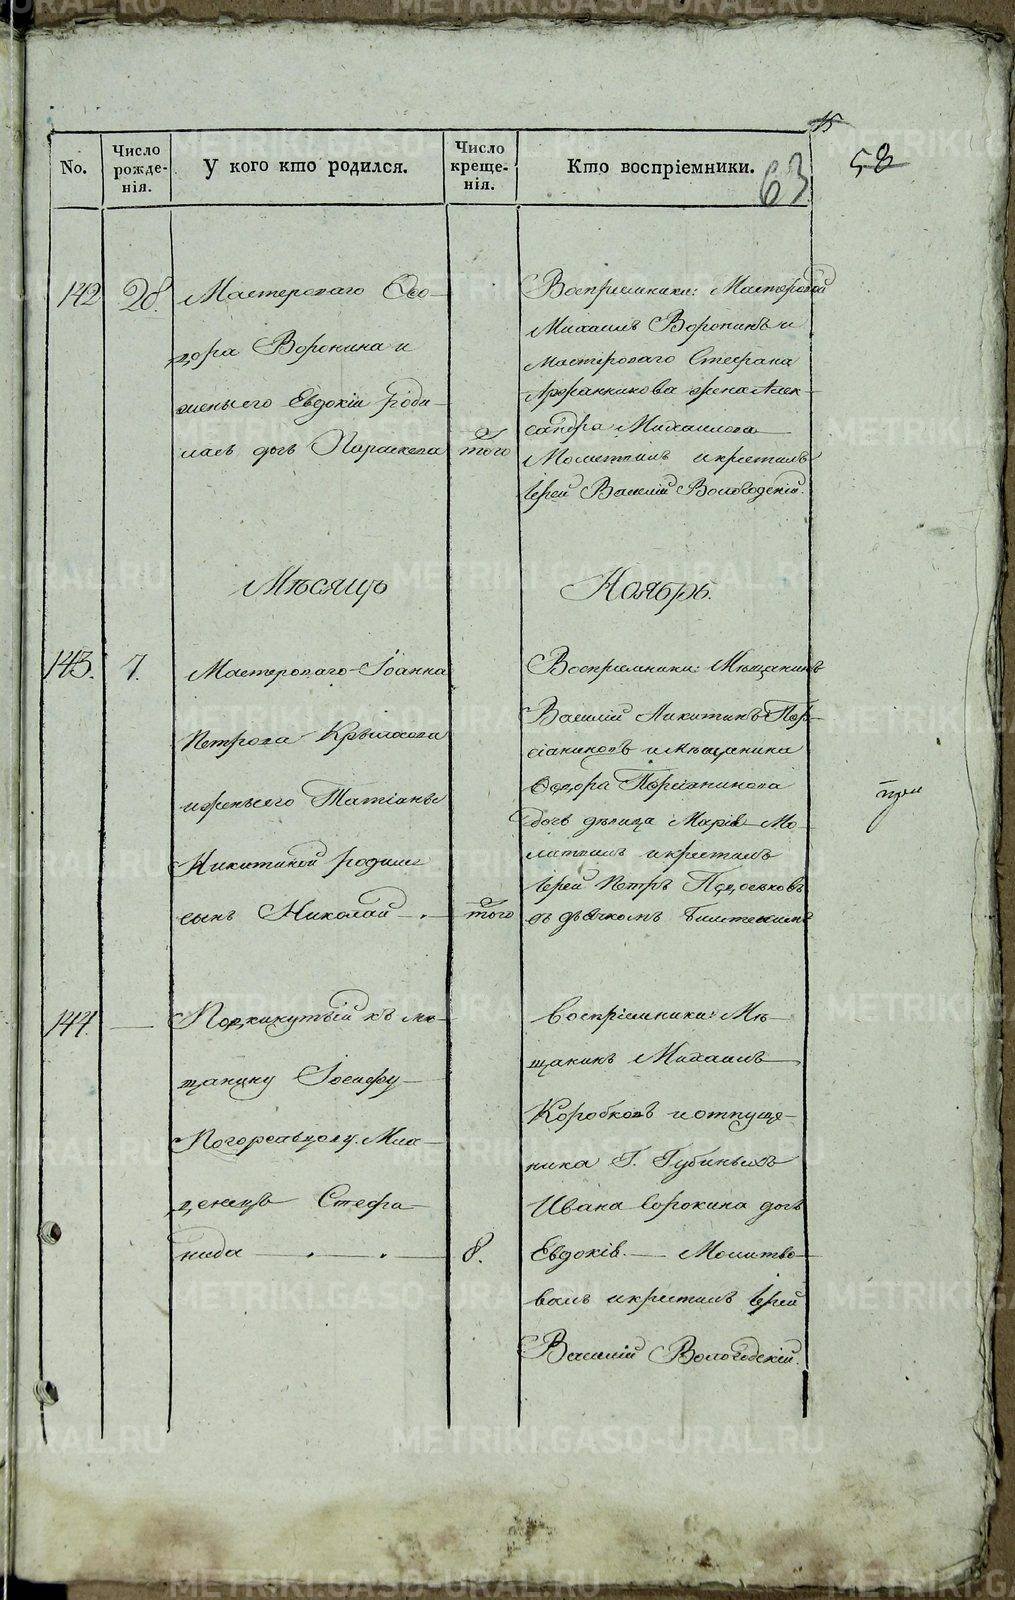 15
58
63
No.
Число рожде-нія.
У кого кто родился.
Число креще-нія.
Кто воспріемники.
142
28.
Мастероваго Ѳео-
дора Воронина и
жены его Евдокіи роди-
лась дочь Параскева
того
Воспріемники: Мастеровой
Михаилъ Воронинъ и
мастероваго Стефана
жена Алек-
сандра Михаилова
Молитвилъ и крестилъ
Іерей Василій Вологодскій.
Мѣсяцъ
Ноябрь.
143.
7.
Мастероваго Іоанна
Петрова Крылосова
и жены его Татіаны
Никитиной родился
сынъ Николай
того
Воспріемники: Мѣщанинъ
Василій Никитинъ Пор-
сіаниновъ и мѣщанина
Ѳедора Порсіанинова
дочь дѣвица Марія Мо-
литвилъ и крестилъ
Іерей Петръ
съ дьячкомъ
144.
Подкинутый къ мѣ-
щанину Іосифу
Погорѣльцову Мла-
денецъ Стефа-
нида
8.
Воспріемники: Мѣ-
щанинъ Михаилъ
Коробковъ и отпуще-
ника Г. Губиныхъ
Ивана Сорокина дочь
Евдокія. Молитво-
валъ и крестилъ Іерей
Василій Вологодскій.
METRIKI.GASO-URAL.RU